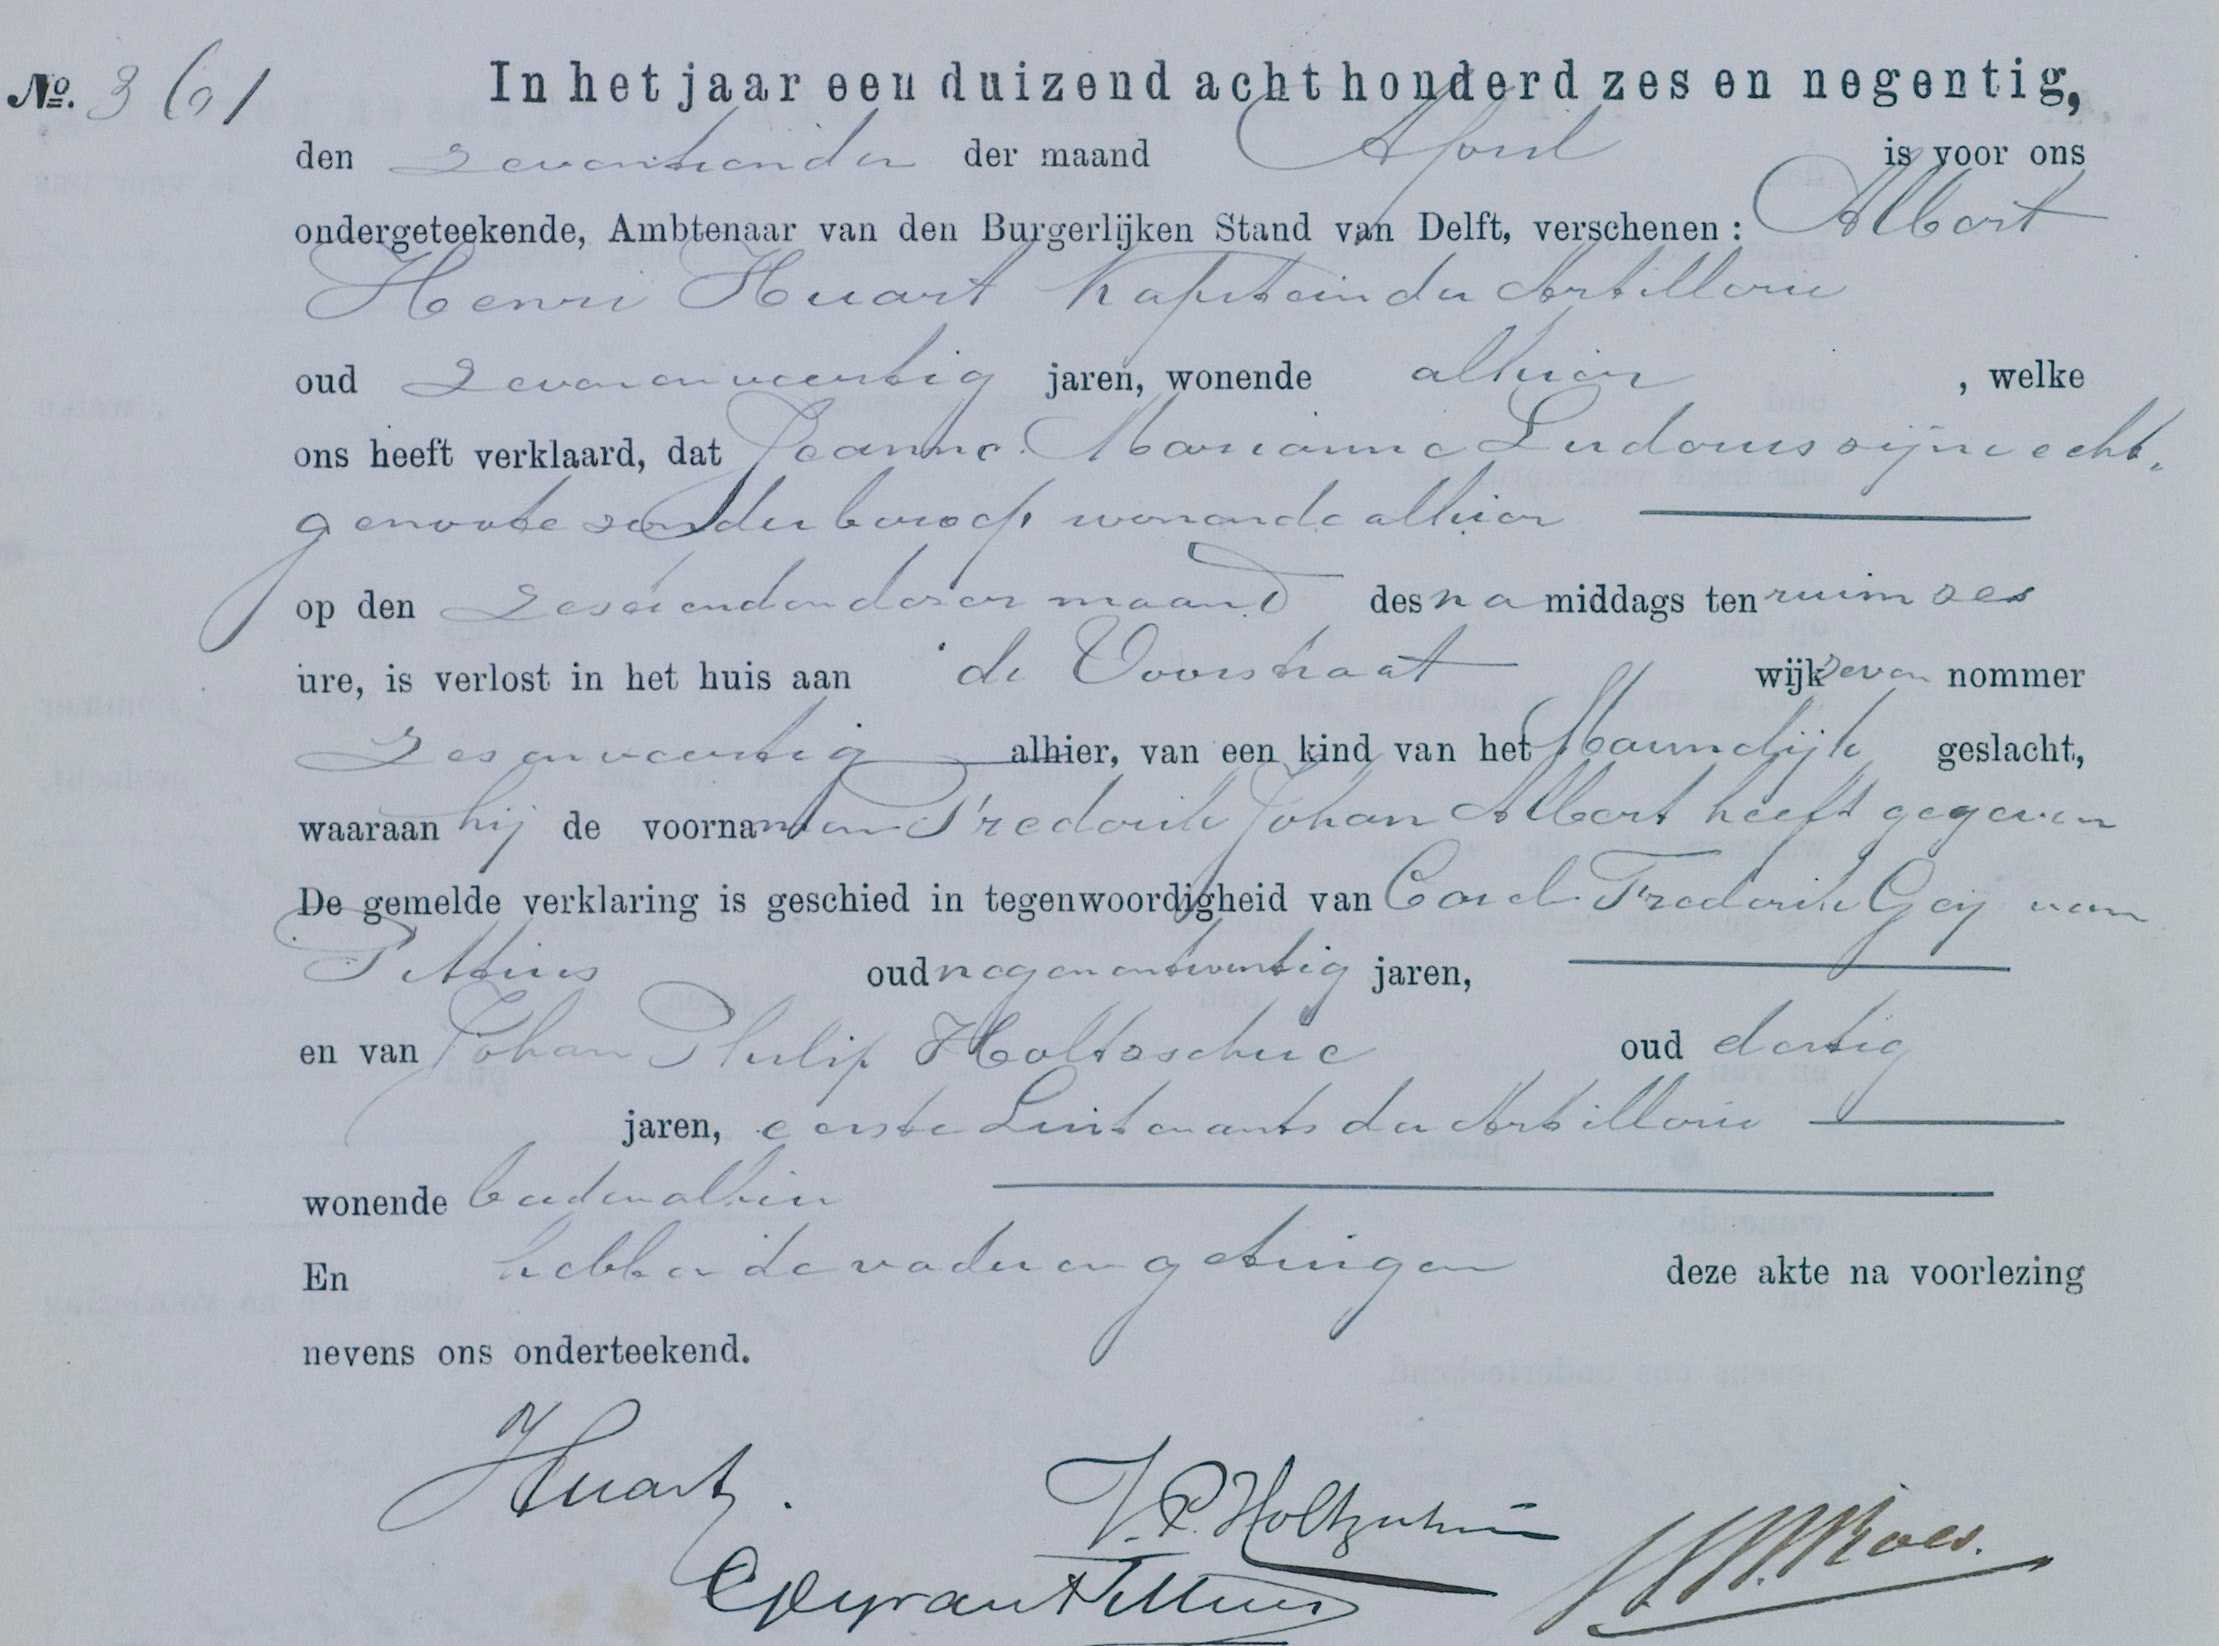 No. 361
In het jaar een duizend acht honderd zes en negentig,
den zeventienden der maand April is voor ons
ondergeteekende, Ambtenaar van den Burgerlijken Stand van Delft, verschenen: Albert
Henri Huart Kapitein der Artillerie
oud zevenenveertig jaren, wonende alhier, welke
ons heeft verklaard, dat Jeanne Marianne Ludovus zijne echt,
genoote zonder beroep wonende alhier
op den zestienden dezer maand des na middags ten ruim zes
ure, is verlost in het huis aan de Voorstraat wijk zeven nommer
zesenveertig alhier, van een kind van het Mannelijk geslacht,
waaraan hij de voornamen Frederik Johan Albert heeft gegeven
De gemelde verklaring is geschied in tegenwoordigheid van Carel Frederik Gey van
Pittius oud negenentwintig jaren,
en van Johan Philip Holtzschue oud dertig
jaren, eerste Luitenants der Artillerie
wonende beiden alhier
En hebben de vader en getuigen deze akte na voorlezing
nevens ons onderteekend.
Huart.
J. P. Holtzschue
CF Gey van Pittius